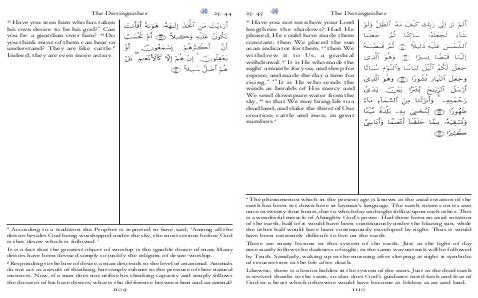 The Distinguisher
25 : 44
⁴³ Have you seen him who has taken
his own desire to be his god?ᵃ Can
you be a guardian over him? ⁴⁴ Do
you think most of them can hear or
understand? They are like cattle.ᵇ
Indeed, they are even more astray.
أَرَءَيْتَ مَنِ ٱتَّخَذَ إِلَـٰهَهُۥ هَوَىٰهُ أَفَأَنتَ
تَكُونُ عَلَيْهِ وَكِيلًا أَمْ تَحْسَبُ
أَنَّ أَكْثَرَهُمْ يَسْمَعُونَ أَوْ
يَعْقِلُونَ ۚ إِنْ هُمْ إِلَّا كَٱلْأَنْعَـٰمِ ۖ بَلْ
هُمْ أَضَلُّ سَبِيلًا
ᵃ According to a tradition the Prophet is reported to have said, 'Among all the
deities besides God being worshipped under the sky, the most serious before God
is that desire which is followed.'
It is a fact that the greatest object of worship is the ignoble desire of man. Many
deities have been devised simply to justify the religion of desire-worship.
ᵇ Responding to the lure of desire, a man descends to the level of an animal. Animals
do not act as a result of thinking, but simply submit to the pressure of their natural
instincts. Now, if a man does not use his thinking capacity and simply follows
the dictates of his base desires, what is the difference between him and an animal?
1109
25 : 45
The Distinguisher
⁴⁵ Have you not seen how your Lord
lengthens the shadows? Had He
pleased, He could have made them
constant; then We placed the sun
as an indicator for them, ⁴⁶ then We
withdrew it to Us, a gradual
withdrawal.ᵃ ⁴⁷ It is He who made the
night a mantle for you, and sleep for
repose; and made the day a time for
rising. ⁴⁸ It is He who sends the
winds as heralds of His mercy and
We send down pure water from the
sky, ⁴⁹ so that We may bring life to a
dead land; and slake the thirst of Our
creation; cattle and men, in great
numbers.
أَلَمْ تَرَ إِلَىٰ رَبِّكَ كَيْفَ مَدَّ ٱلظِّلَّ وَلَوْ
شَآءَ لَجَعَلَهُۥ سَاكِنًا ثُمَّ جَعَلْنَا
ٱلشَّمْسَ عَلَيْهِ دَلِيلًا ثُمَّ قَبَضْنَـٰهُ
إِلَيْنَا قَبْضًا يَسِيرًا وَهُوَ ٱلَّذِى
جَعَلَ لَكُمُ ٱلَّيْلَ لِبَاسًا وَٱلنَّوْمَ سُبَاتًا
وَجَعَلَ ٱلنَّهَارَ نُشُورًا وَهُوَ ٱلَّذِىٓ
أَرْسَلَ ٱلرِّيَـٰحَ بُشْرًۢا بَيْنَ يَدَىْ
رَحْمَتِهِۦ ۚ وَأَنزَلْنَا مِنَ ٱلسَّمَآءِ مَآءً
طَهُورًا لِّنُحْـِۧىَ بِهِۦ بَلْدَةً مَّيْتًا
وَنُسْقِيَهُۥ مِمَّا خَلَقْنَآ أَنْعَـٰمًا وَأَنَاسِىَّ
كَثِيرًا
ᵃ The phenomenon which in the present age is known as the axial rotation of the
earth has been set down here in layman's language. The earth rotates on its axis
once in twenty-four hours, due to which day and night follow upon each other. This
is a wonderful miracle of Almighty God's power. Had there been no axial rotation
of the earth, half of it would have been continuously under the blazing sun, while
the other half would have been continuously enveloped by night. Thus it would
have been extremely difficult to live on the earth.
There are many lessons in this system of the earth. Just as the light of day
necessarily follows the darkness of night, in the same way untruth will be followed
by Truth. Similarly, waking up in the morning after sleeping at night is symbolic
of resurrection to the life after death.
Likewise, there is a lesson hidden in the system of the rains. Just as the dead earth
is revived thanks to the rains, so also does God's guidance instil faith and fear of
God in a heart which otherwise would have become as lifeless as an arid land.
1110